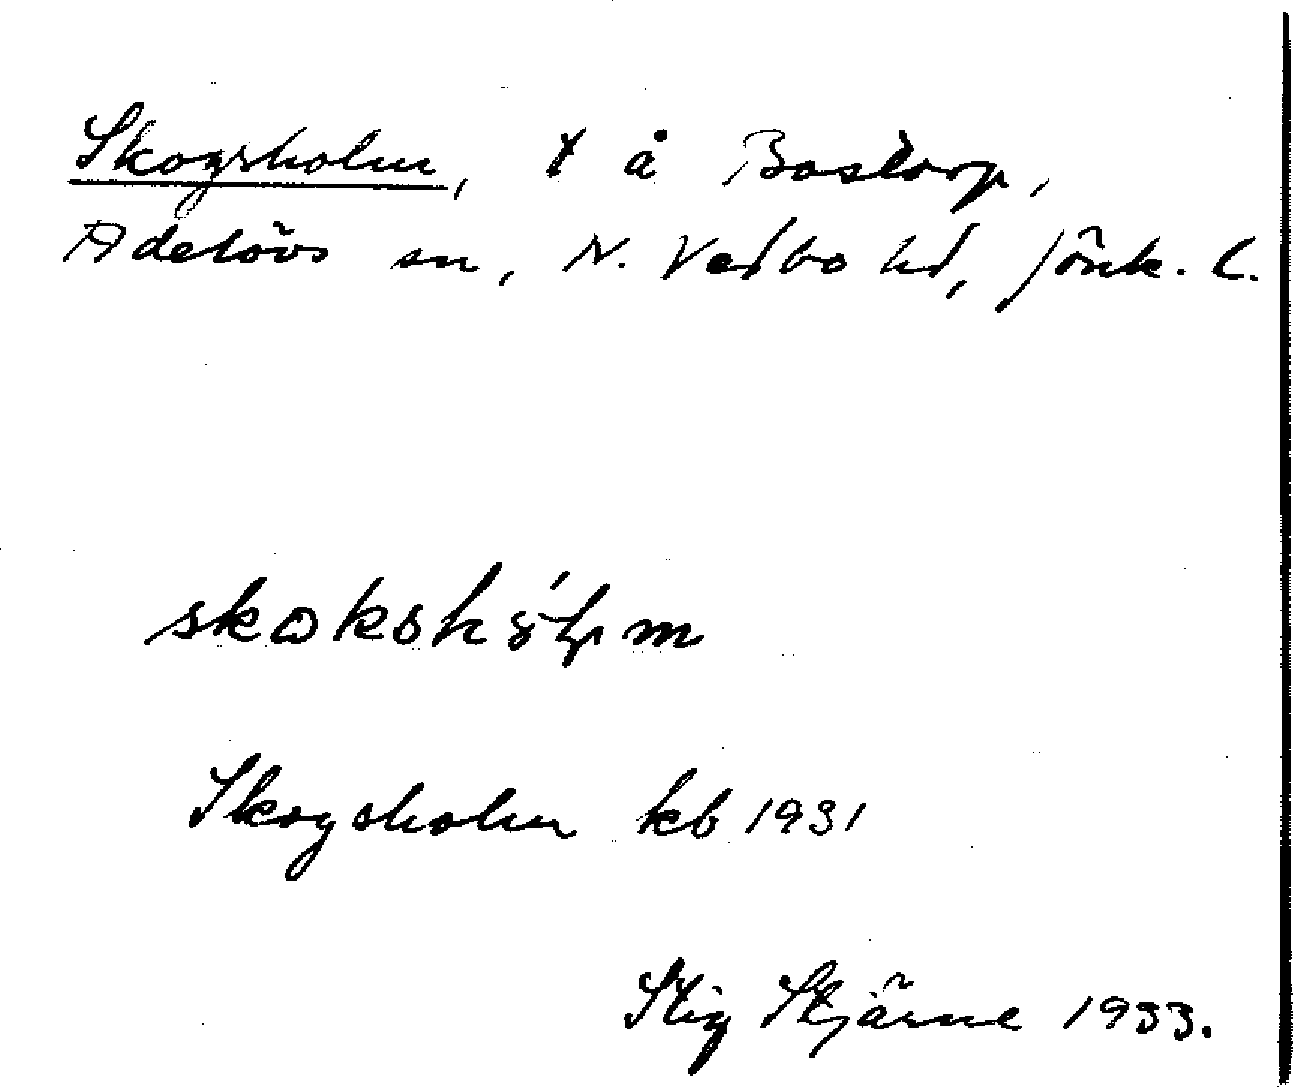 Skogsholm, t å Bostorp,
Adelövs sn, N. Vedbo hd, Jönk. l.
Skogsholm kb 1931
Stig Stjärne 1933.